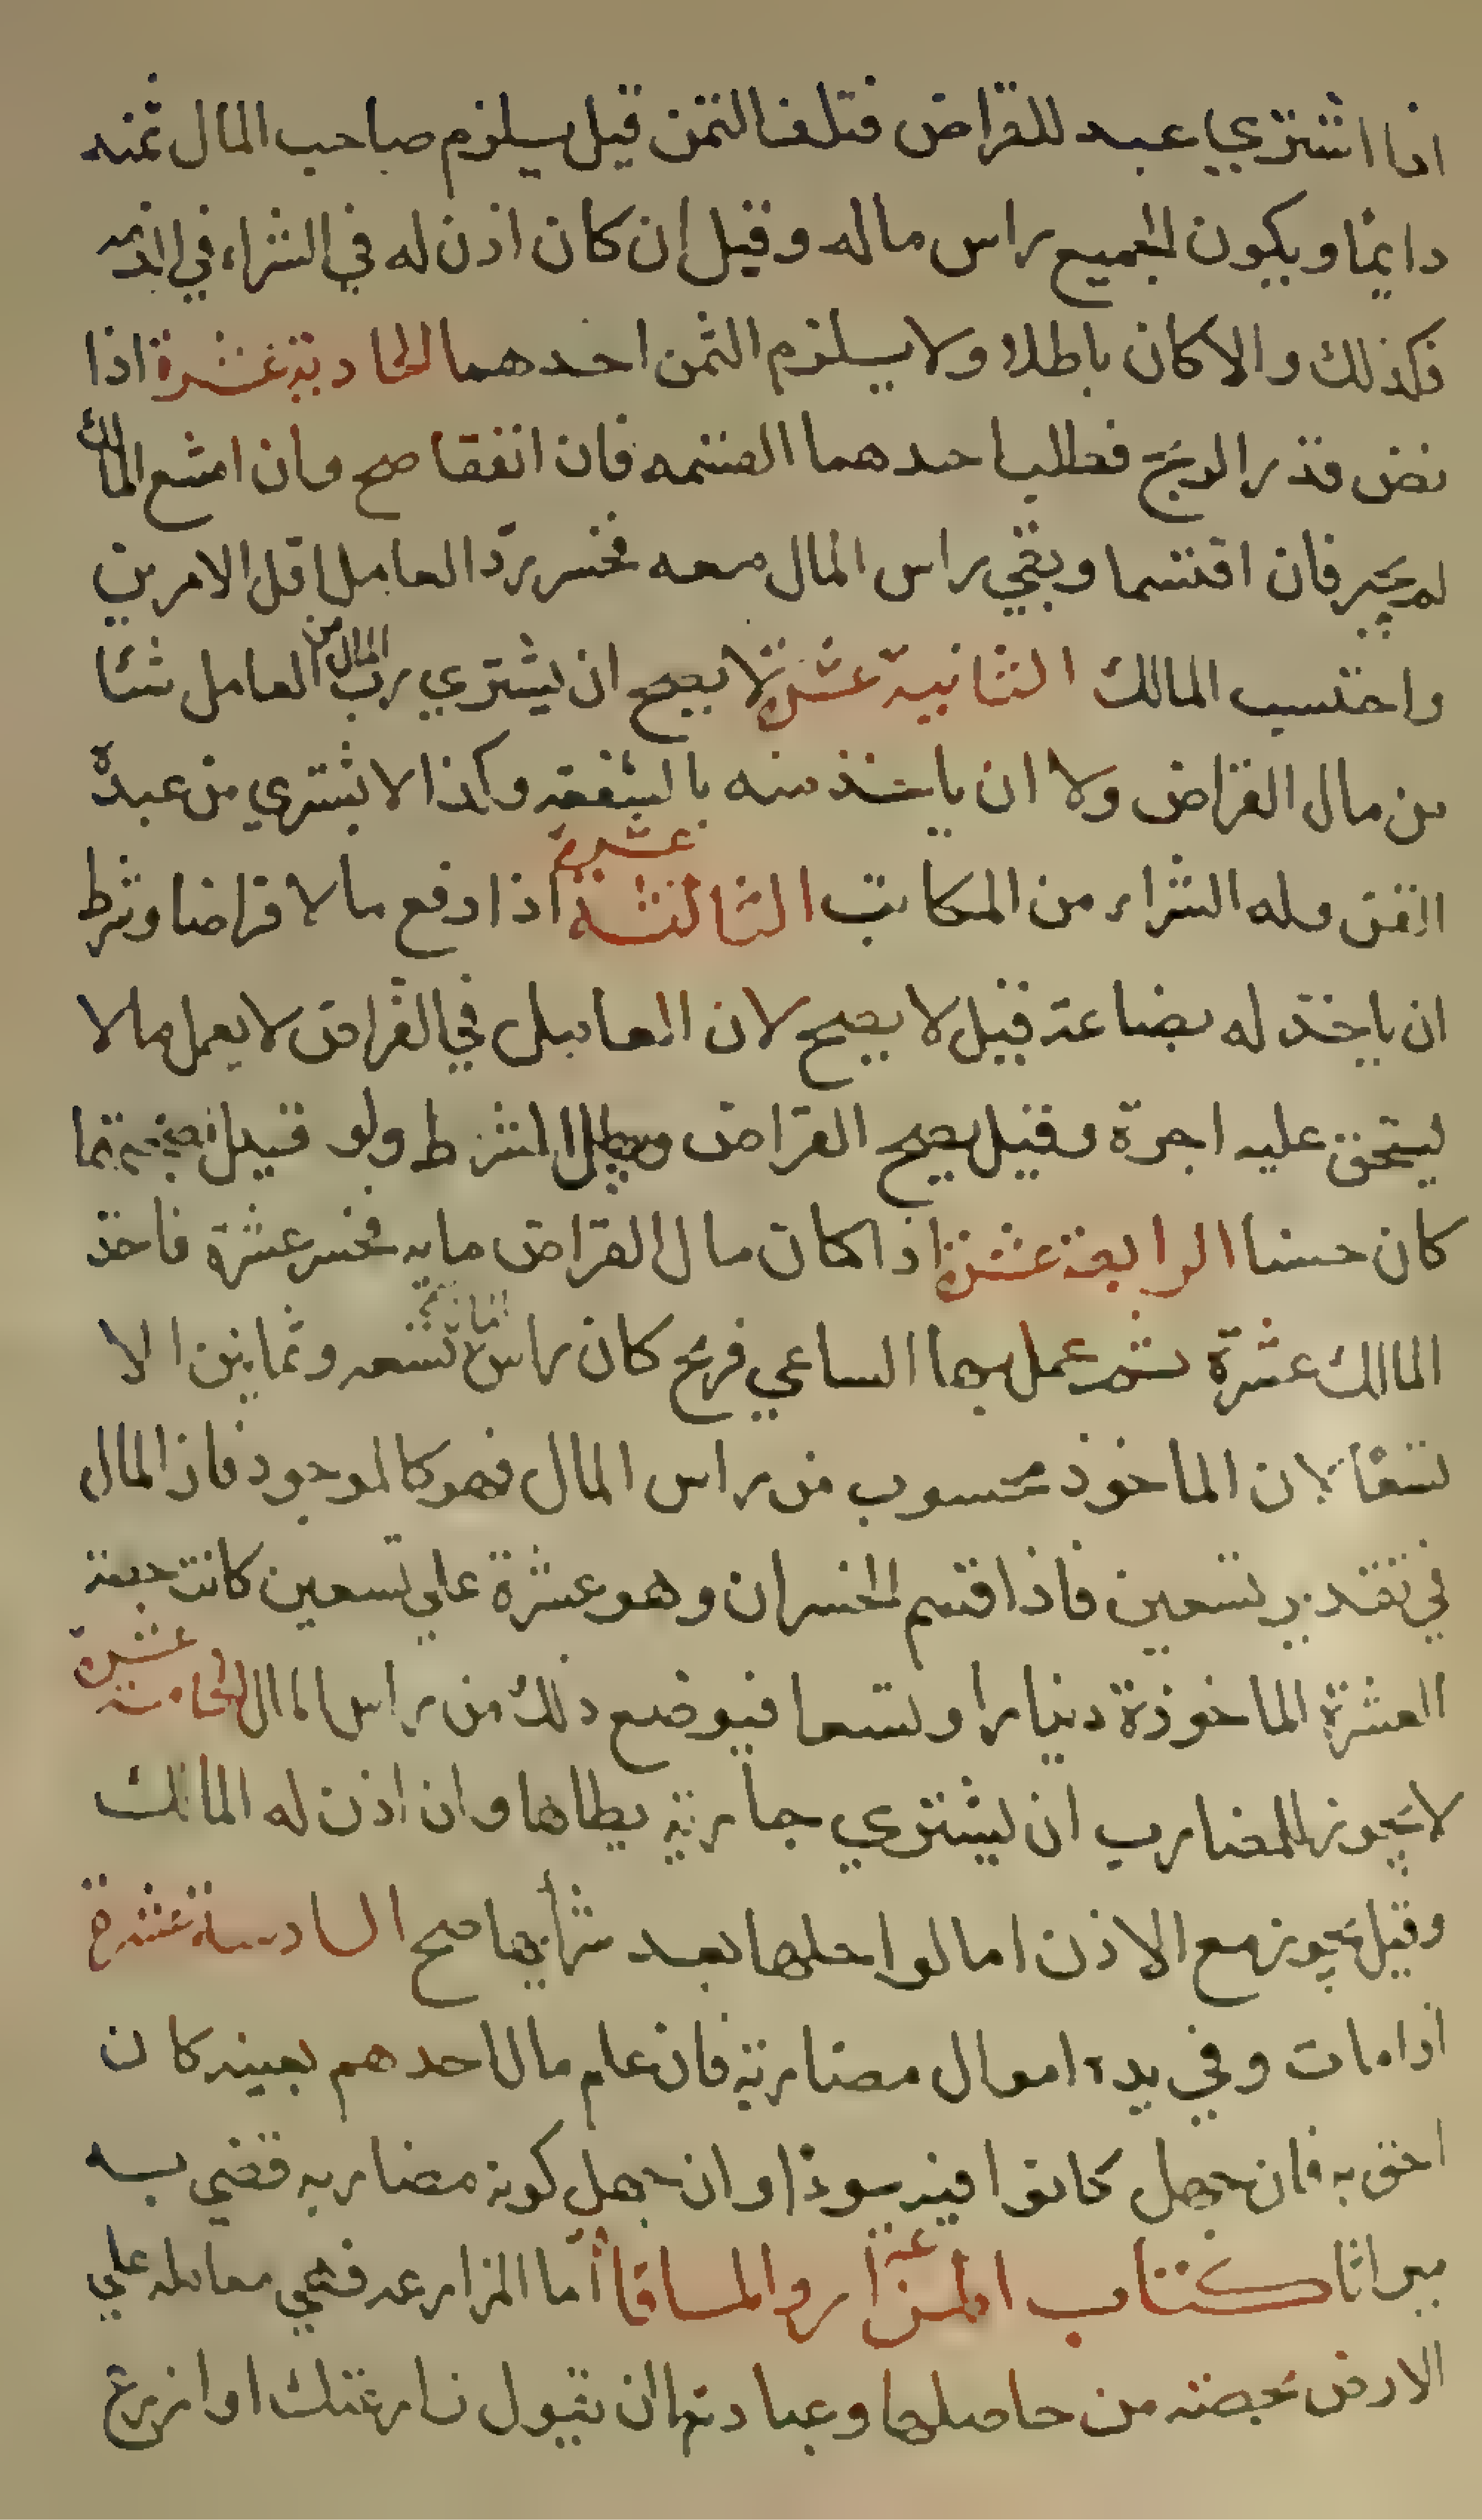 اذا اشتري عبد للقراض فتلف الثمن قيل يلزم صاحب المال ثمنه
دايمًا ويكون الجميع راس ماله وقيل ان كان اذن له في الشراء في الذمه
فكذلك والا كان باطلا ولا يلزم الثمن احدهما الحادية عشرة اذا
نض قدر الربح فطلب احدهما القسمه فان اتفقا صح وان امتنع المالك
لم يجبر فان اقتسما وبقي راس المال معه فخسر ردّ العامل اقل الامرين
واحتسب المالك الثانية عشرة لا يصح ان يشتري رب المال من العامل شئا
من مال القراض ولا ان ياخذ منه بالشفعة وكذا لا يشتري من عبده
القن وله الشراء من المكاتب الثالثة عشرة اذا دفع مالا قراضا وشرط
ان ياخذ له بضاعة قيل لا يصح لان العامل في القراض لا يعمل مالا
يستحق عليه اجرة وقيل يصح القراض ويبطل الشرط ولو قيل بصحتهما
كان حسنا الرابعة عشرة اذا كان مال القراض مايه فخسر عشرة فاخذ
المالك عشرة ثم عمل بها الساعي فربح كان راس المال تسعه وثمانين الا
تسعًا لان الماخوذ محسوب من راس المال فهو كالموجود فاذا المال
في تقدير تسعين فاذا قسم الخسران وهو عشرة علي تسعين كانت حصة
العشرة الماخوذة دينارا وتسعا فيوضع ذلك من راس المال الخامسة عشرة
لا يجوز للمضارب ان يشتري جارية يطاها وان اذن له المالك
وقيل يجوز مع الاذن اما لو احلها بعد شرأيها صح السادسة عشرة
اذا مات وفي يده اموال مضاربة فان علم مال احدهم بعينه كان
احق به فان جهل كانوا فيه سوآءا وان جهل كونه مضاربه قضي به
ميراثا كتاب المزارعة والمساقا أما المزارعه فهي معامله علي
الارض بحصة من حاصلها وعبادتها ان تقول زارعتك او ازرع